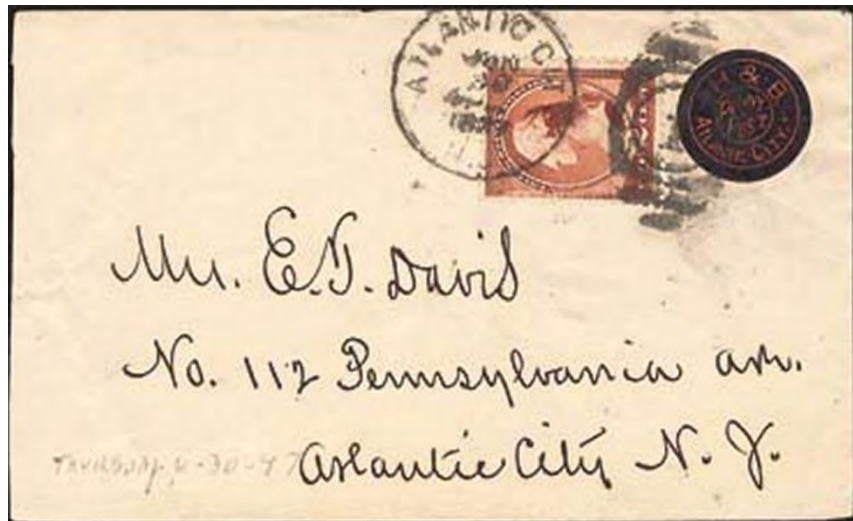 ATLANTIC CI
JUN
30
H & B
ATLANTIC CITY.
Mr. E. T. Davis
No. 112 Pennsylvania av.
Atlantic City N. J.
THURSDAY, 6-30-